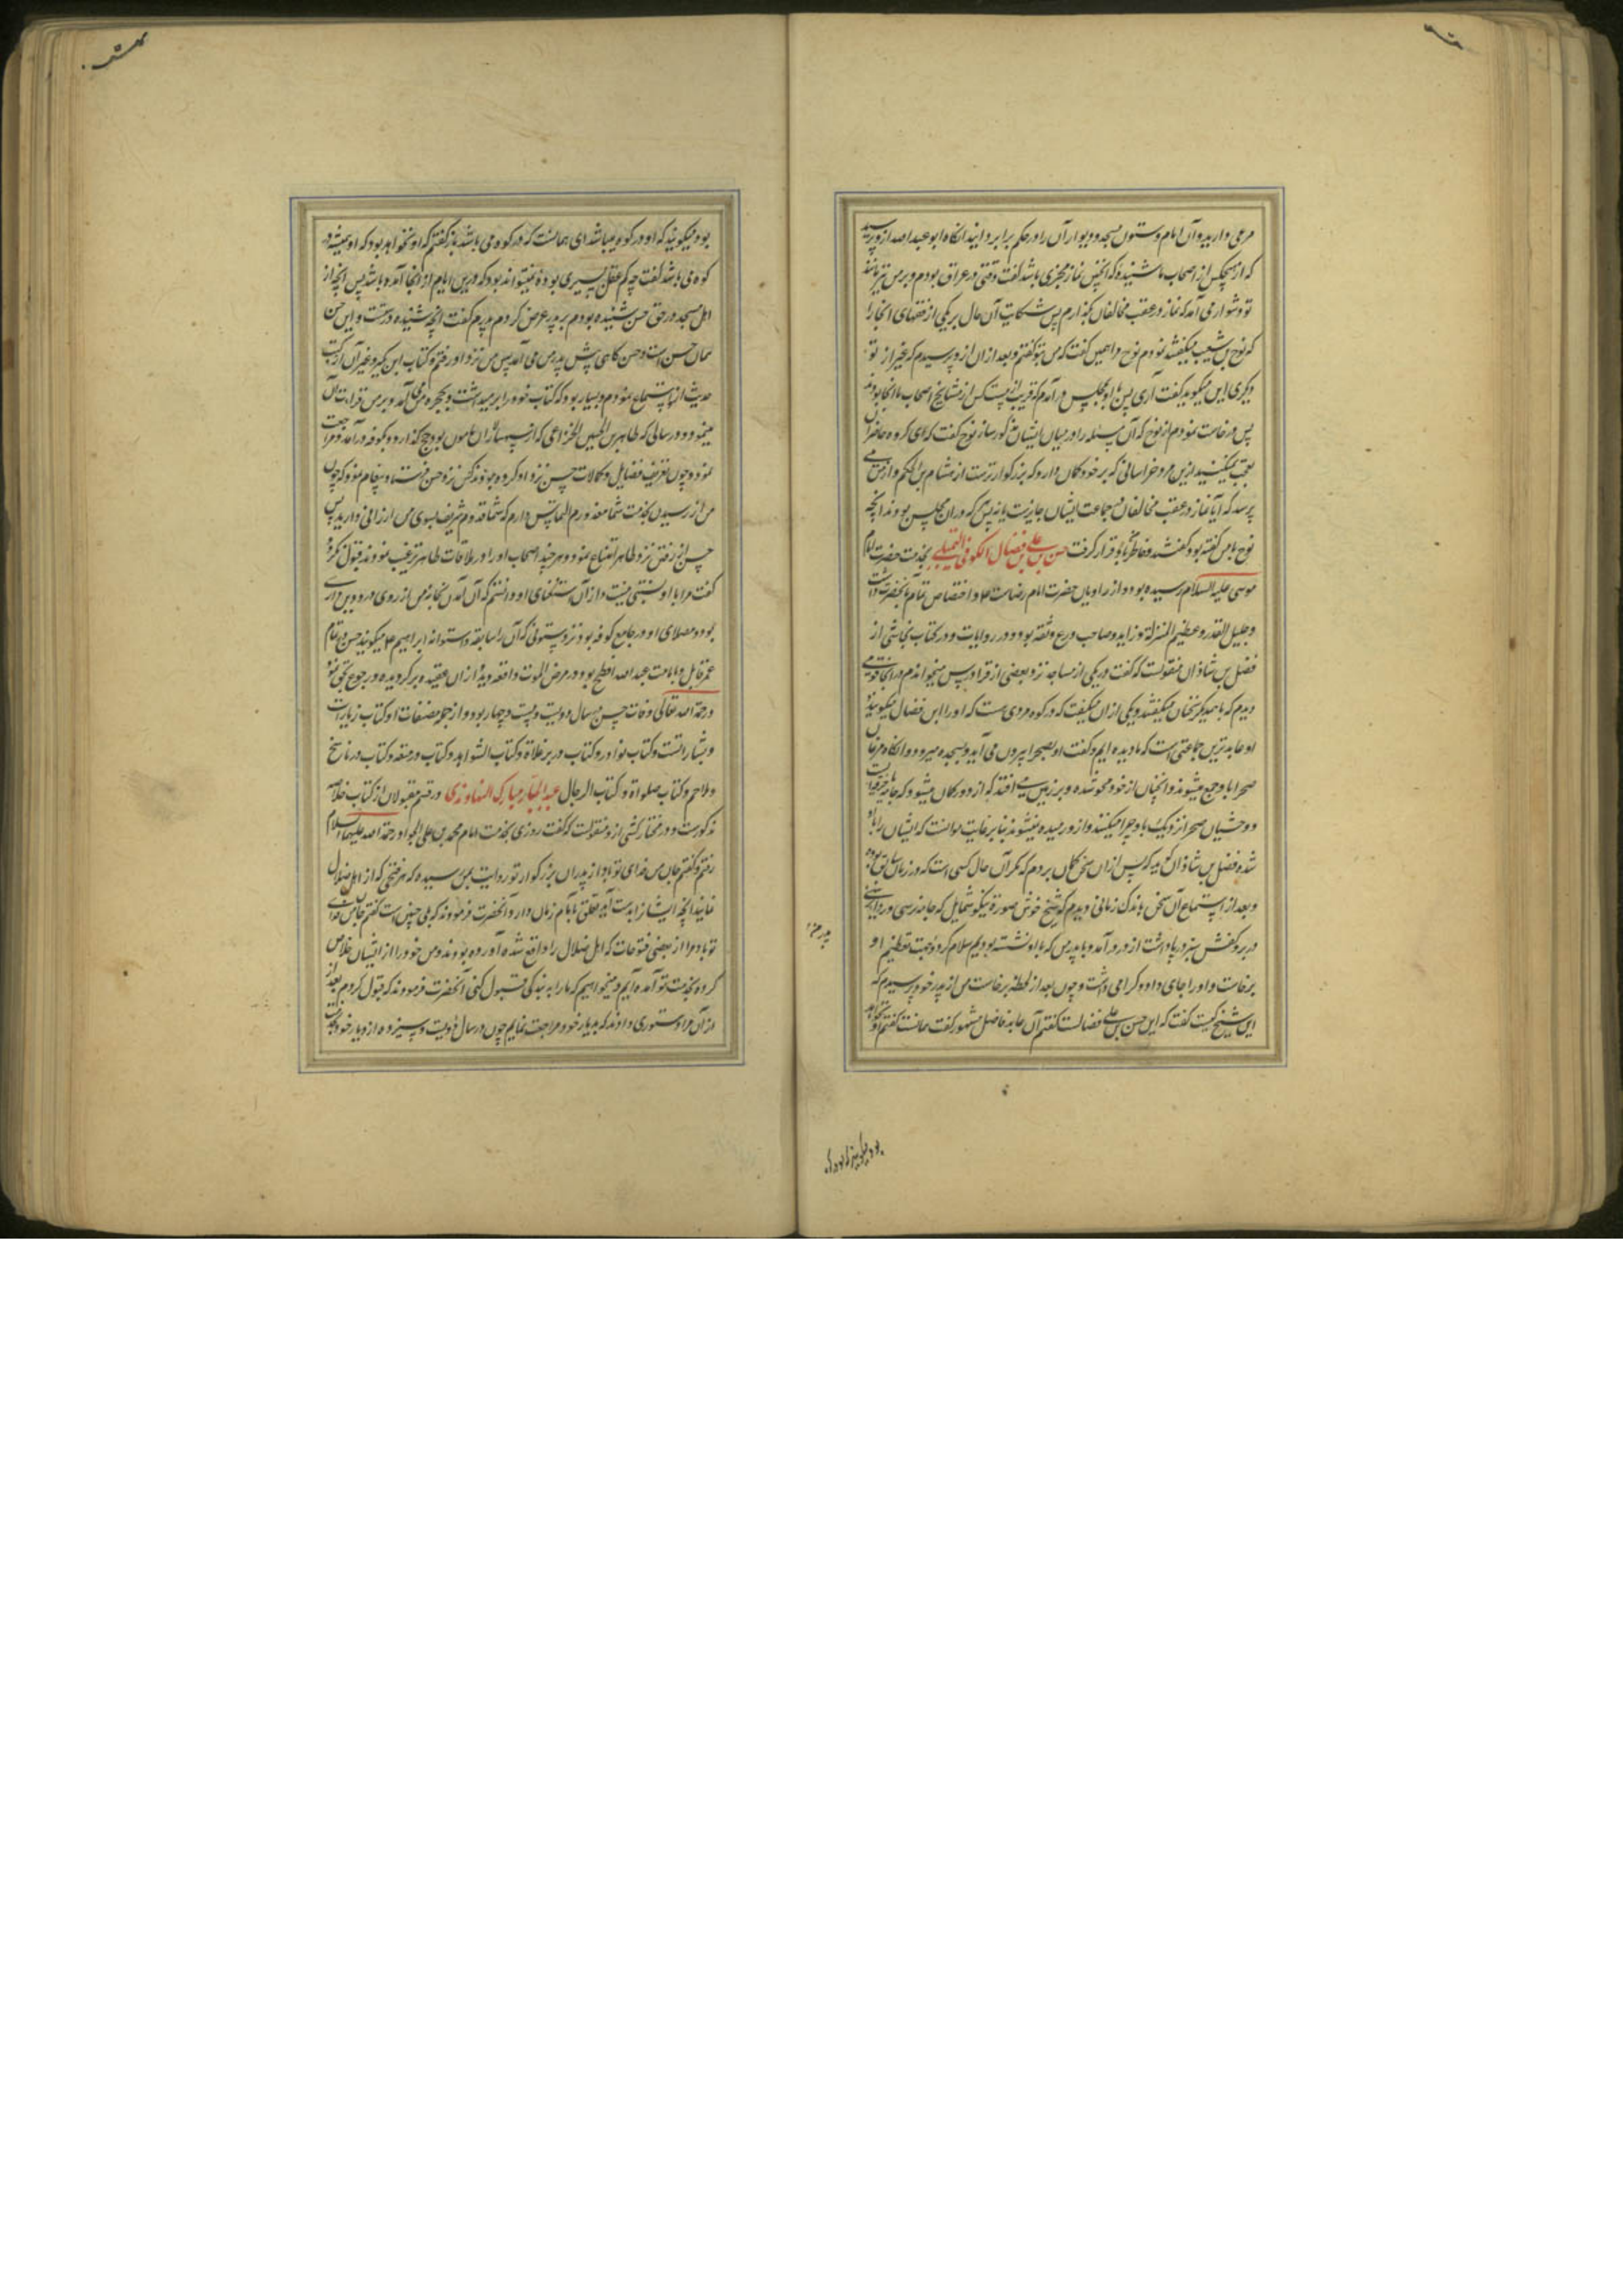 مرعی دارید و آن امام و ستون مسجد و دیوار آن را در حکم برابر دانید انگاه ابو عبد الله ازو پرسید
که از هیچکس از اصحاب ما شنیده که اینچنین نماز مجزی باشد گفت وقتی در عراق بودم و بر من نیز مانند
تو دشوار می آمد که نماز در عقب مخالفان بگذارم پس شکایت آن حال بر یکی از فقهای انجا را
که نوح بن شعیب میگفتند نمودم نوح مرا همین گفت که من بتو گفتم و بعد از ان ازو پرسیدم که غیر از تو
دیگری این میگوید گفت آری پس با او بمجلسی در آمدم که قریب به بیست کس از مشایخ اصحاب ما انجا بودند
پس درخواست نمودم از نوح که آن مسئله را در میان ایشان مذکور سازد نوح گفت که ای گروه حاضران
تعجب میکنید ازین مرد خراسانی که بر خود گمان دارد که بزرگوارترست از هشام بن الحکم و از من می
پرسد که آیا نماز در عقب مخالفان و جماعت ایشان جایزست یا نه پس هر که در ان مجلس بودند انچه
نوح بامن گفته بود گفتند و خاطر من بآن قرار گرفت حسن بن علی بن فضال الکوفی التیملی بخدمت حضرت امام
موسی علیه السلام رسیده بود و از راویان حضرت امام رضاست ع و اختصاص تمام بآنحضرت داشت
و جلیل القدر و عظیم المنزلة و زاهد و صاحب ورع و ثقه بود در روایات و در کتاب نجاشی از
فضل بن شاذان منقولست که گفت در یکی از مساجد نزد بعضی از قرا درس میخواندم در انجا قومی
دیدم که با همدیگر سخنان میگفتند و یکی از ان میگفت که در کوه مردی هست که او را ابن فضال میگویند
او عابدترین جماعتی است که ما دیده ایم و گفت او بصحرا بیرون می آید و بسجده میرود و انگاه مرغان
صحرا با او جمع میشوند و انچنان از خود محو شده و بر زمین می افتد که از دور گمان میشود که جامه یا خرقه ایست
و وحشیان صحرا نزدیک باو چرا میکنند و از و رمیده نمیشوند بنابر غایت موانست که ایشان را باو
شده فضل بن شاذان گوید که پس از ان سخن گمان بردم که مگر آن حال کسی است که در زمان سابق بوده
و بعد از استماع آن سخن باندک زمانی دیدم که شیخ خوش صورة نیکو شمایل که جامه نرسی و ردای نرسی
در بر و کفش سبز در پا داشت از در در آمد و با پدر من که با او نشسته بودیم سلام کرد و جهت تعظیم او
برخاست و او را جای داد و گرامی داشت و چون بعد از لحظه برخاست من از پدر خود پرسیدم که
این شیخ کیست گفت که این حسن بن علی فضالست گفتم آن عابد فاضل مشهور گفت همانست گفتم او نخواهد
بود میگویند که او در کوه میباشد ای همانست که در کوه می باشد باز گفتم که او نخواهد بود که او همیشه در
کوه می باشد گفت چه کم عقل پسری بوده نمیتواند بود که درین ایام از انجا آمده باشد پس انچه از
اهل مسجد در حق حسن شنیده بودم بر پدر عرض کردم پدرم گفت انچه شنیده درست و این حسن
همان حسن است و حسن گاهی پیش پدر من می آمد پس من نزد او رفتم و کتاب ابن بکیر و غیر آن از کتب
حدیث ازو استماع نمودم و بسیار بود که کتاب خود را بر میداشت و بحجره من می آمد و بر من قراءت آن
مینمود و در سالی که طاهر بن الحسین الخزاعی که از سپهسالاران مامون بود حج گذارد و بکوفه در آمد و مراجعت
نمود و چون تعریف فضایل و کمالات حسن نزد او کرده بودند کس نزد حسن فرستاد و پیغام نمود که چون
من از رسیدن بخدمت شما معذورم التماس دارم که شما قدوم شریف بسوی من ارزانی دارید پس
حسن از رفتن نزد طاهر امتناع نمود و هر چند اصحاب او را در ملاقات طاهر ترغیب نمودند قبول نکرد و
گفت مرا با او نسبتی نیست و از آن استغنای او دانستم که آن آمدن بخانه من از روی درد دین داری
بود و مصلای او در جامع کوفه بود نزد ستونی که آن را سابقه و استوانه ابراهیم ع میگویند حسن در تمام
عمر قایل بامامت عبد الله افطح بود و در مرض الموت واقعه دید از ان عقیده برگردیده رجوع بحق نمود
رحمة الله تعالی وفات حسن در سال دویست و بیست و چهار بود و از جمله مصنفات او کتاب زیارات
و بشاراتست و کتاب نوادر و کتاب در رد غلاة و کتاب الشواهد و کتاب در متعه و کتاب در ناسخ
و ملاحم و کتاب صلواة و کتاب الرجال عبد الجبار مبارک النهاوندی در قسم مقبولان از کتاب خلاصه
مذکورست و در مختار کشی ازو منقولست که گفت روزی بخدمت امام محمد بن علی الجواد رحمة الله علیهما السلام
رفتم و گفتم جان من فدای تو باد از پدران بزرگوار تو روایت بمن رسیده که هر فتحی که از اهل ضلال
نمایند انچه ایشان را بدست آید تعلق بامام زمان دارد آنحضرت فرمودند که بلی چنین است گفتم جان من فدای
تو باد مرا از بعضی فتوحات که اهل ضلال را واقع شده آورده بودند و من خود را از ایشان خلاص
کرده بخدمت تو آمده ایم و میخواهیم که ما را به بندگی قبول کنی آنحضرت فرمودند که قبول کردم بعد از
از آن مرا دستوری دادند که بدیار خود مراجعت نمایم چون در سال دویست و سیزده از دیار خود بخدمت